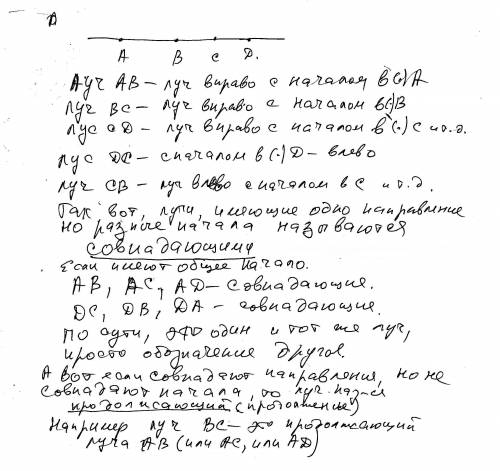 A
A B C D.
Луч AB – луч вправо с началом в (·) A
луч BC – луч вправо с началом в (·) B
луч CD – луч вправо с началом в (·) C и т.д.
луч DC – с началом в (·) D – влево
луч CB – луч влево с началом в C и т.д.
Так вот, лучи, имеющие одно направление
но разные начала называются
совпадающими
Если имеют общее начало.
AB, AC, AD – совпадающие.
DC, DB, DA – совпадающие.
по сути, это один и тот же луч,
просто обозначение другое.
А вот если совпадают направления, но не
совпадают начала, то луч назся
продолжающий (продолжение)
Например луч BC – это продолжающий
луча AB (или AC, или AD)